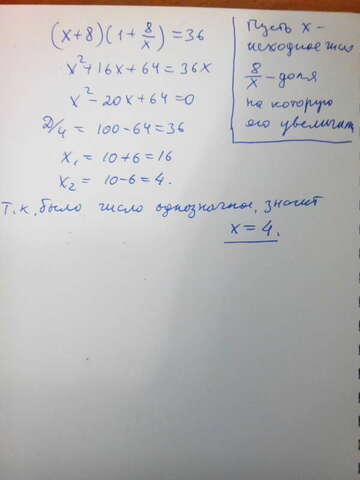 (x+8)(1+8/x)=36
x²+16x+64=36x
x²-20x+64=0
D/4=100-64=36
x₁=10+6=16
x₂=10-6=4.
Т.к. было число однозначное, значит
x=4.
Пусть x-
исходное число
8/x-доля
на которую
его увеличили